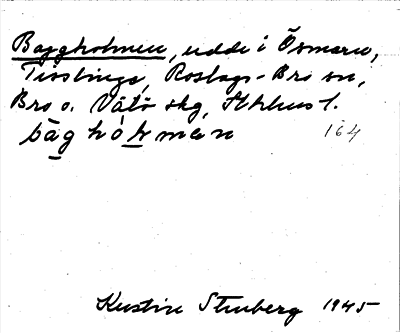 Baggholmen, udde i Ösmaren,
Tisslinge, Roslags-Bro sn,
Bro o. Vätö skg, Sthlms l.
bághòlmen 164
Kerstin Stenberg 1945